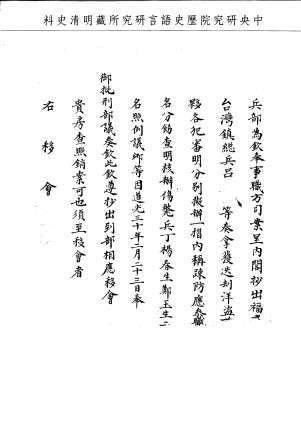 中央研究院歷史語言研究所藏明清史料
兵部為欽奉事職方司案呈內閣抄出福
台灣鎮總兵呂 等奏拿獲迭刦洋盜
夥各犯審明分別擬辦一摺內稱疎防應叅職
名分飭查明核辦傷斃兵丁楊春生鄭玉生二
名照例議卹等因道光三十年二月二十三日奉
御批刑部議奏欽此欽遵抄出到部相應移會
貴房查照銷案可也須至移會者
右移會